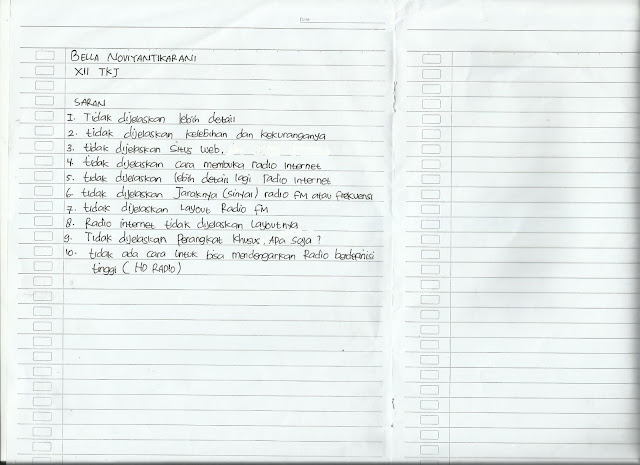 Date
BELLA NOVIYANTIKARANI
XII TKJ
SARAN
1. Tidak dijelaskan lebih detail
2. tidak dijelaskan kelebihan dan kekuranganya
3. tidak dijelaskan Situs Web.
4. tidak dijelaskan cara membuka radio Internet
5. tidak dijelaskan lebih detail lagi radio Internet
6. tidak dijelaskan Jaraknya (sinyal) radio FM atau frekuensi
7. tidak dijelaskan Layout Radio FM
8. Radio internet tidak dijelaskan Layoutnya
9. Tidak dijelaskan Perangkat khusus, Apa saja?
10. tidak ada cara untuk bisa mendengarkan Radio berdefinisi
tinggi (HD RADIO)